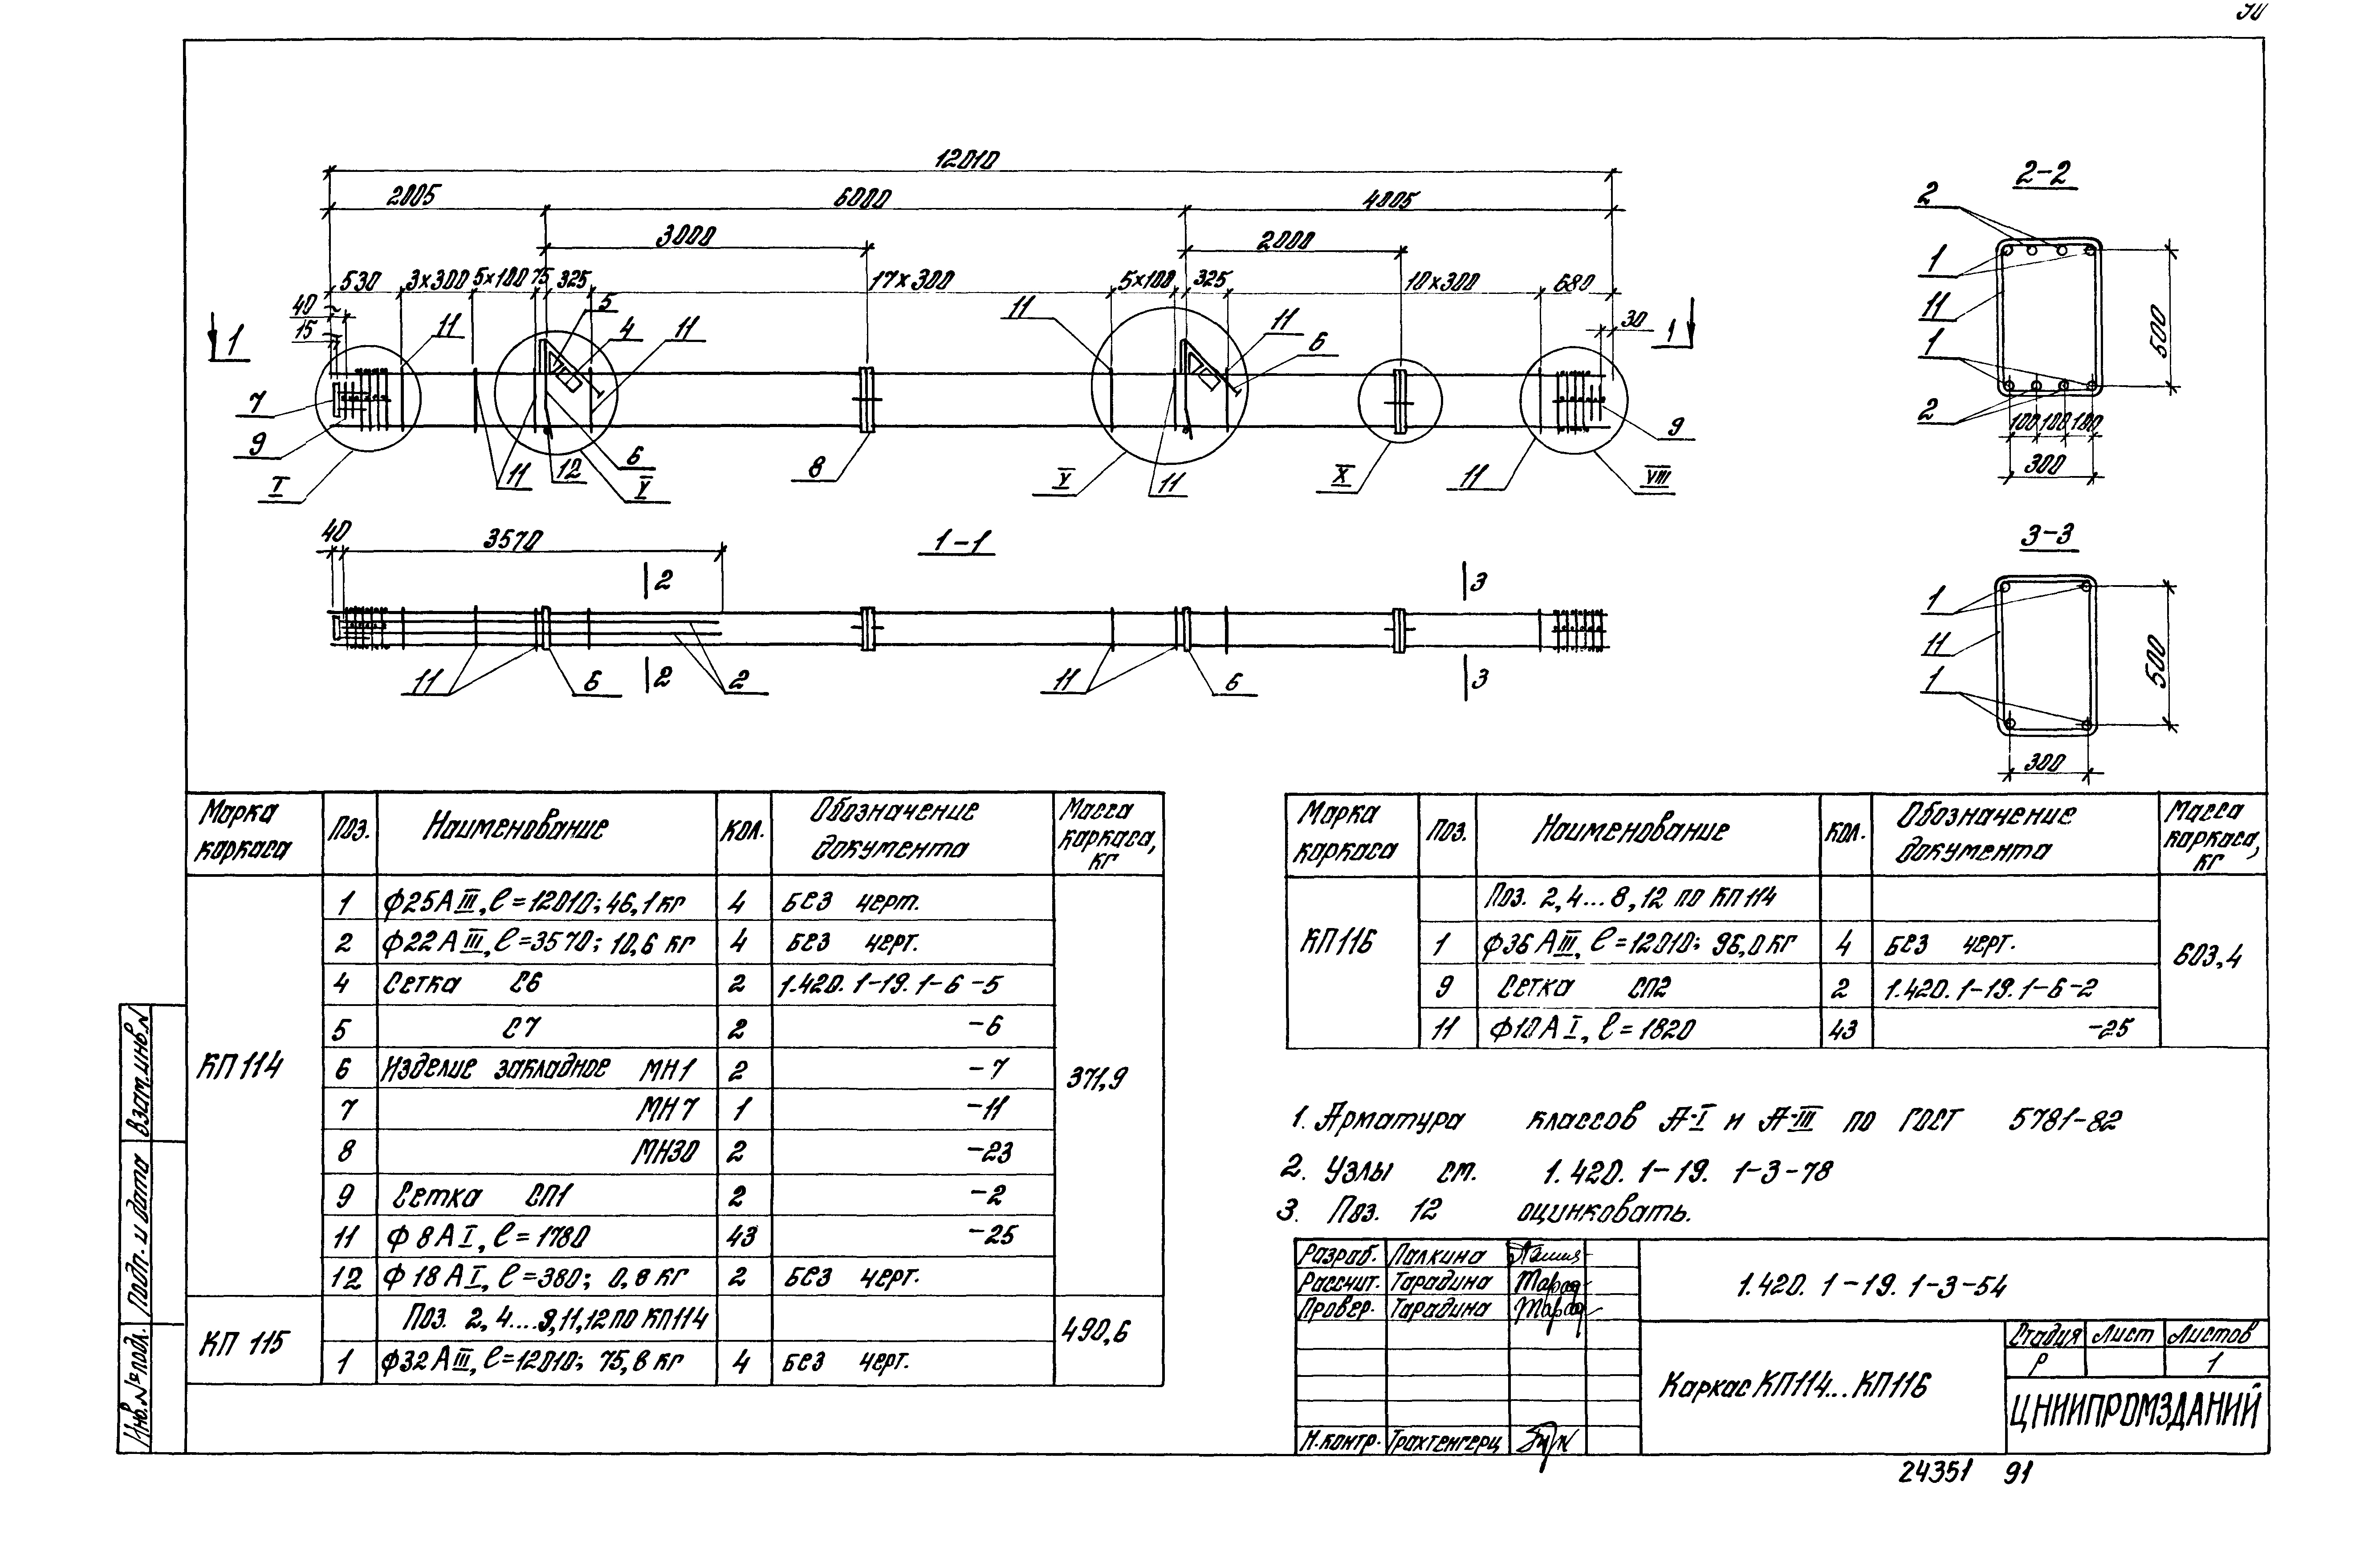 12010
2005 6000 4005
3000 2000
530 3×300 5×100 75 325 17×300 5×100 325 10×300 680
40 15 30
1 1
11 5 4 11 11 11 6
7 9 11 12 6 8 11 11 9
I V V X VIII
2-2
2
1
11
1
2
500
100 100 100
300
1-1
40 3570
2 3
2 3
11 6 2 11 6
3-3
1
11
1
500
300
Марка каркаса Поз. Наименование Кол. Обозначение документа Масса каркаса, кг
КП114 371,9
1 Ф25АIII, ℓ=12010; 46,1кг 4 Без черт.
2 Ф22АIII, ℓ=3570; 10,6 кг 4 Без черт.
4 Сетка С6 2 1.420.1-19.1-6-5
5 С7 2 -6
6 Изделие закладное МН1 2 -7
7 МН7 1 -11
8 МН30 2 -23
9 Сетка СП1 2 -2
11 Ф8АI, ℓ=1780 43 -25
12 Ф18АI, ℓ=380; 0,8 кг 2 Без черт.
КП 115 490,6
Поз. 2, 4....9, 11, 12 по КП114
1 Ф32АIII, ℓ=12010; 75,8 кг 4 Без черт.
Марка каркаса Поз. Наименование Кол. Обозначение документа Масса каркаса, кг
КП116 603,4
Поз. 2, 4... 8, 12 по КП114
1 Ф36АIII, ℓ=12010; 96,0кг 4 Без черт.
9 Сетка СП2 2 1.420.1-19.1-6-2
11 Ф10АI, ℓ=1820 43 -25
1. Арматура классов А-I и А-III по ГОСТ 5781-82
2. Узлы см. 1.420.1-19. 1-3-78
3. Поз. 12 оцинковать.
Разраб. Палкина
Рассчит. Тарадина
Провер. Тарадина
Н.контр. Трахтенгерц
1.420.1-19.1-3-54
Каркас КП114...КП116
Стадия Лист Листов
Р 1
ЦНИИПРОМЗДАНИЙ
Взам.инв.N
Подп. и дата
Инв.№подл.
24351 91